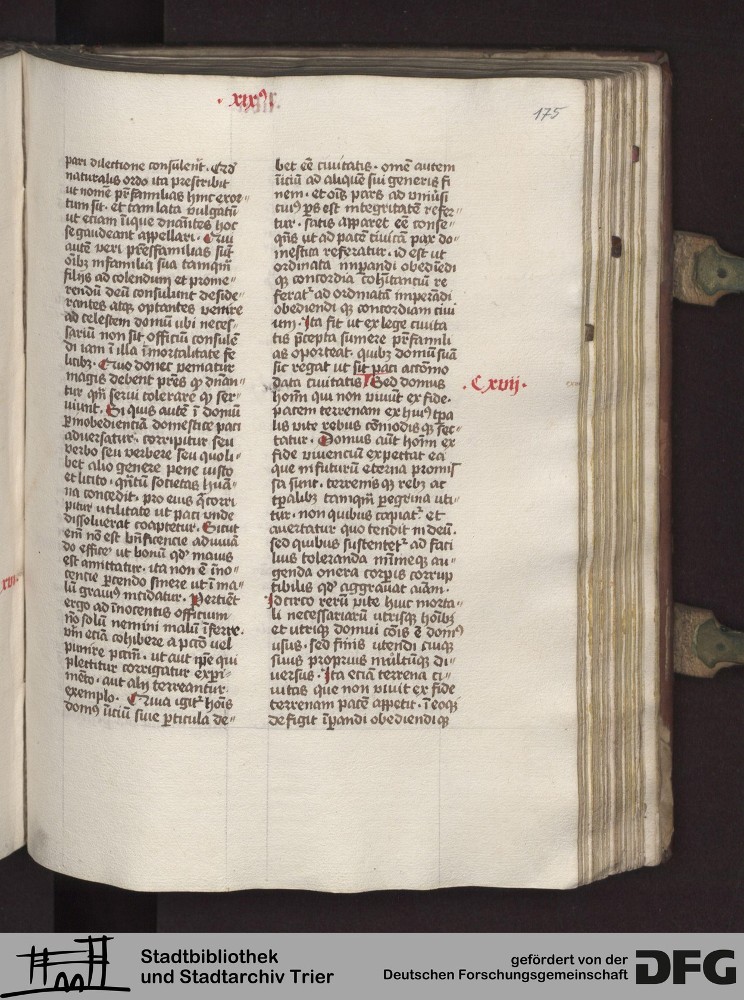 · xixꝰ ·
175
pari dilectione consulent̄. Qͥd
naturalis ordo ita prescribit
ut nomē pr̄familias hinc exor⸗
tum sit. et tam lata vulgatū
ut etiam īique dnāntes hoc
se gaudeant appellari. Qui
autē veri pr̄esfamilias sūt
oībꝫ in familia sua tamqm̄
filijs ad colendum et prome⸗
rendū deū consulunt deside⸗
rantes atqꝫ optantes venire
ad celestem domū ubi neces⸗
sariū non sit officiū consulē
di iam ī illa īmortalitate fe
licibꝫ. Quo donec veniatur
magis debent pr̄es qꝫ dn̄an⸗
tur qm̄ serui tolerare qꝫ ser⸗
uiunt. Si quis autē ī domū
ꝑ inobedientiā domestice paci
aduersatur. corripitur seu
verbo seu verbere seu quoli⸗
bet alio genere pene iusto
et licito. qn̄tū societas huā⸗
na concedit. pro eius q̄ corri
pitur utilitate ut paci unde
dissoluerat coaptetur. Sicut
em̄ nō est bn̄ficencie adiuuā
do efficeᷣ ut bonū qd' maius
est amittatur. ita non ē īno⸗
cencie ꝑcendo sinere ut ī ma⸗
lū grauiꝰ incidatur. Pertiēt
ergo ad īnocentis officium
nō solū nemini malū īferre.
vm̄ eciā cohibere a pccō uel
punire pccm̄. ut aut ip̄e qui
plectitur corrigatur exꝑi⸗
mēto. aut alij terreantur
exemplo. Quia igit² hoīs
domꝰ īiciū siue ꝑticula de⸗
bet eē ciuitatis. omē autem
īiciū ad aliquē sui generis fi
nem. et oīs pars ad vniūsi
cuiꝰ ps est integritatē refer⸗
tur. satis apparet eē conse⸗
qn̄s ut ad pacē ciuicā pax do⸗
mestica referatur. id est ut
ordinata inꝑandi obediēdi
qꝫ concordia cohītantiū re
ferat² ad ordinatā imperādi
obediendi qꝫ concordiam ciui
um. Ita fit ut ex lege ciuita
tis p̄cepta sumere pr̄famili
as oporteat. quibꝫ domū suā
sic regat ut sit paci accōmo
data ciuitatis. Sed domus
· C xvij ·
hoīm qui non viuūt ex fide.
pacem terrenam ex huiꝰ tꝑa
lis vite rebus cōmodisqꝫ sec⸗
tatur. Domus aūt hoīm ex
fide viuenciū expectat ea
que in futurū eterna promis
sa sunt. terrenisqꝫ rebꝫ ac
tꝑalibꝫ tamqm̄ ꝑegrina uti⸗
tur. non quibus capiat² et
auertatur quo tendit in deū.
sed quibus sustentet² ad faci
lius toleranda min̄eqꝫ au⸗
genda onera corꝑis corrup
tibilis qd' aggrauat aīam.
Idcirco rerū vite huic morta⸗
li necessariarū utrisqꝫ hoībꝫ
et utriqꝫ domui cōis ē domꝰ
usus. sed finis utendi cuiqꝫ
suus proprius multūqꝫ di⸗
uersus. Ita eciā terrena ci⸗
uitas que non viuit ex fide
terrenam pacē appetit. ī eoqꝫ
defigit īꝑandi obediendiqꝫ
xvi
Stadtbibliothek
und Stadtarchiv Trier
gefördert von der
Deutschen Forschungsgemeinschaft
DFG